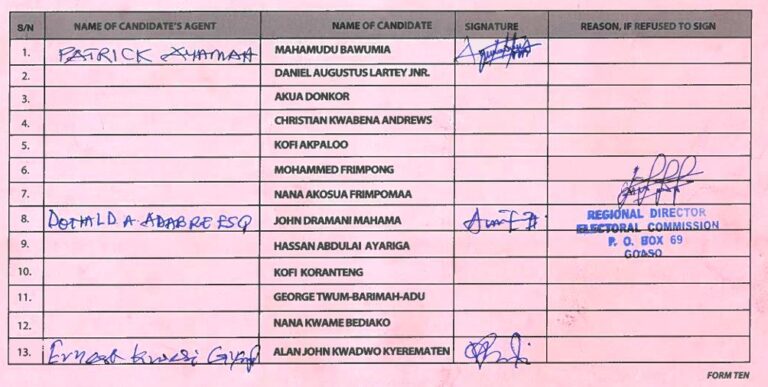 S/N NAME OF CANDIDATE'S AGENT NAME OF CANDIDATE SIGNATURE REASON, IF REFUSED TO SIGN
1. PATRICK MAHAMUDU BAWUMIA
2. DANIEL AUGUSTUS LARTEY JNR.
3. AKUA DONKOR
4. CHRISTIAN KWABENA ANDREWS
5. KOFI AKPALOO
6. MOHAMMED FRIMPONG
7. NANA AKOSUA FRIMPOMAA
8. DONALD A. ADABRE ESQ JOHN DRAMANI MAHAMA
REGIONAL DIRECTOR
ELECTORAL COMMISSION
P. O. BOX 69
GOASO
9. HASSAN ABDULAI AYARIGA
10. KOFI KORANTENG
11. GEORGE TWUM-BARIMAH-ADU
12. NANA KWAME BEDIAKO
13. Ernest Kwasi ALAN JOHN KWADWO KYEREMATEN
FORM TEN